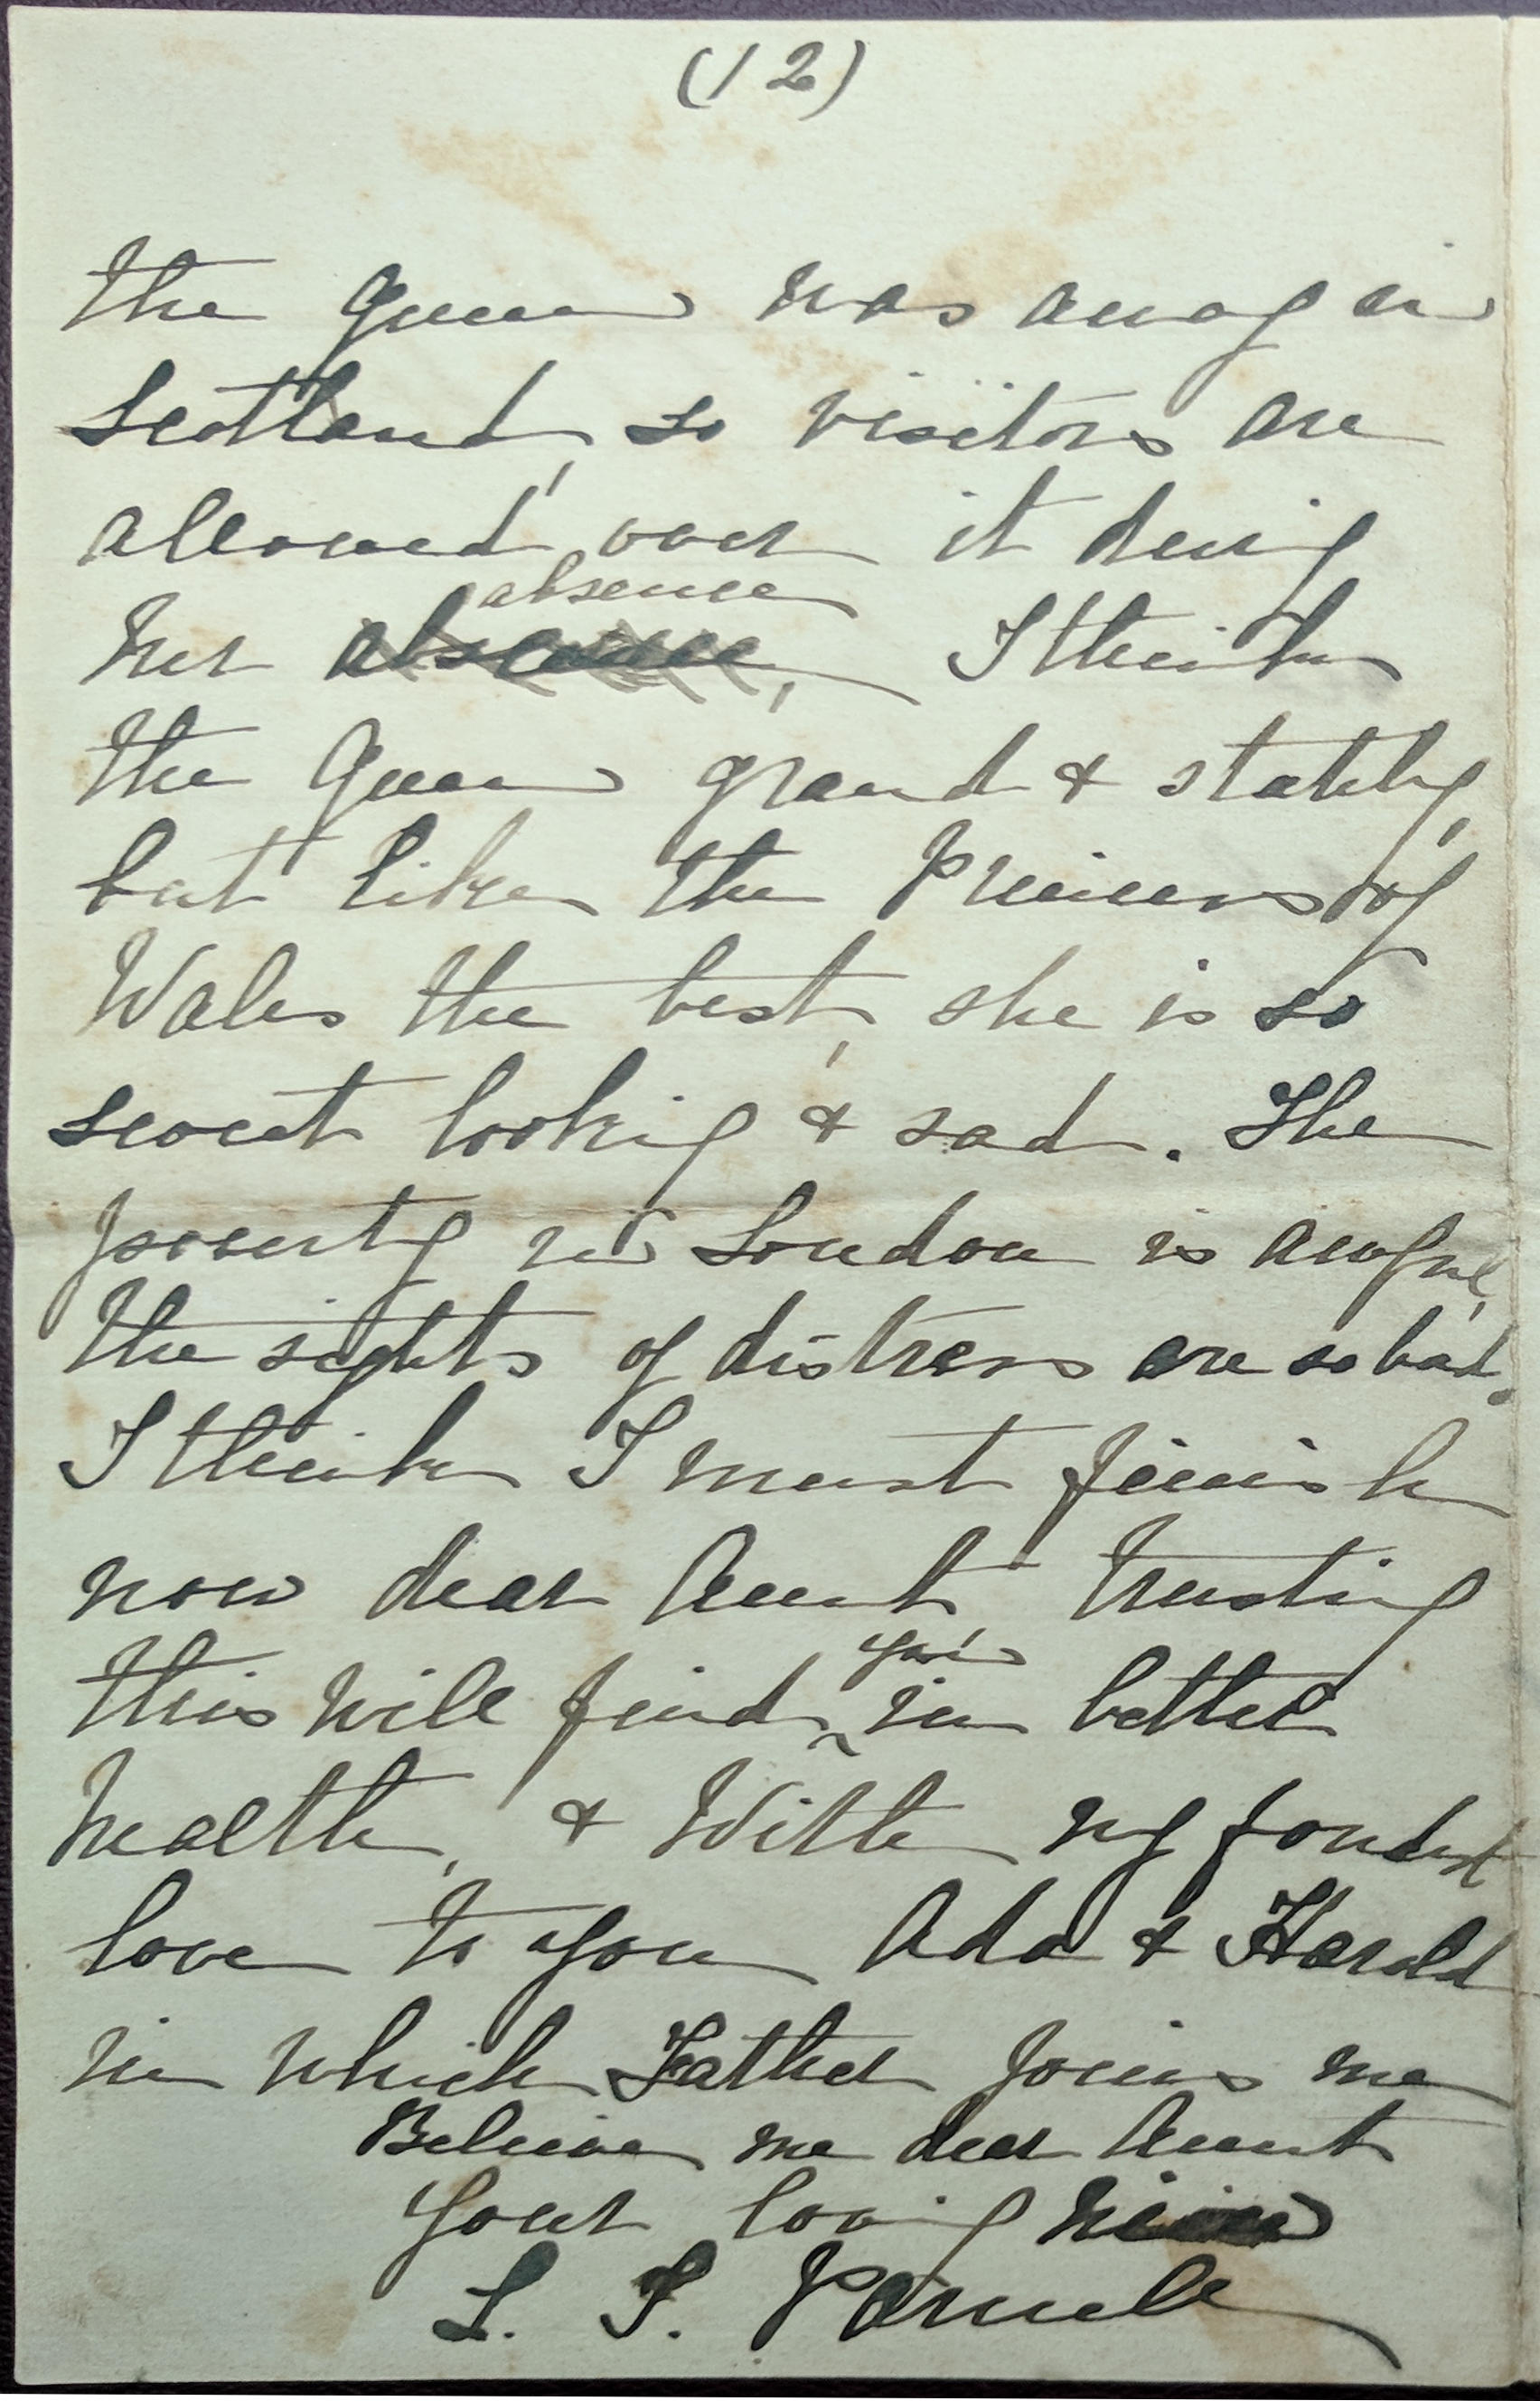 (12)
the Queen was away in
Scotland, so visitors are
allowed over it during
absence
her absence, I think
the Queen grand & stately,
but like the Princess of
Wales the best, she is so
sweet looking & sad. The
poverty in London is awful,
the sights of distress are so bad.
I think I must finish
now dear Aunt trusting
you
this will find in better
health, & With my fondest
love to you Ada & Harold
in which Father joins me
Believe me dear Aunt
Your loving niece
L. F. Parnell